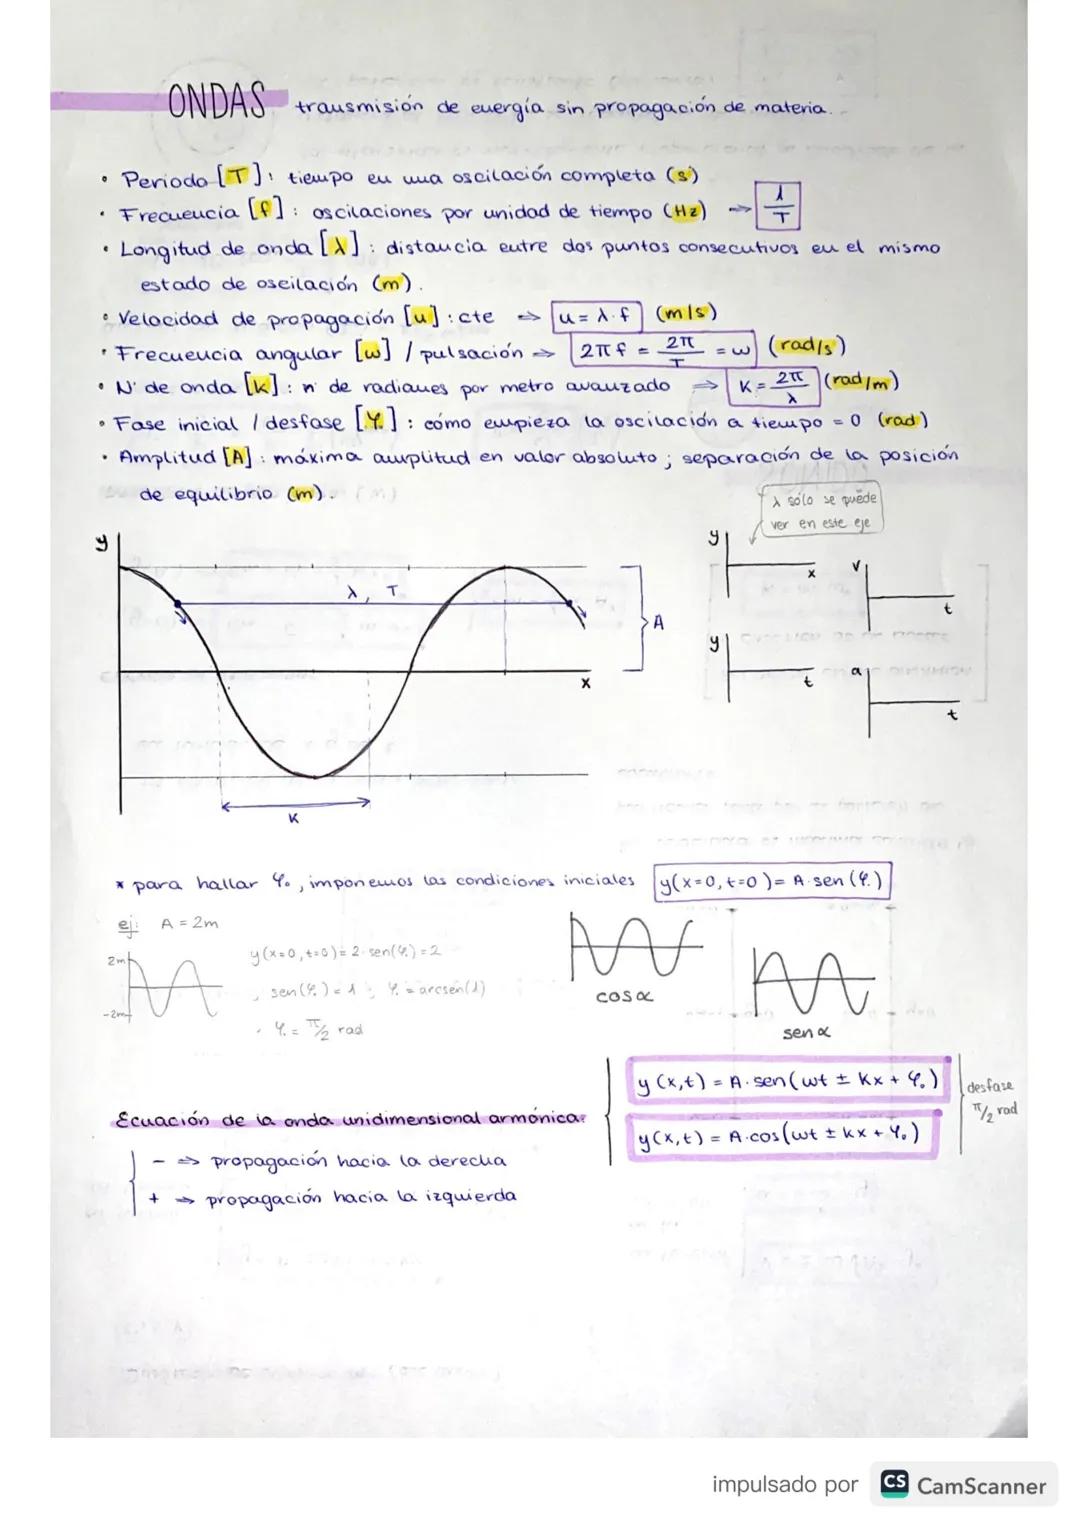 ONDAS transmisión de energía sin propagación de materia.
• Periodo [T]: tiempo en una oscilación completa (s)
• Frecuencia [f]: oscilaciones por unidad de tiempo (Hz) ⇒ 1/T
• Longitud de onda [λ]: distancia entre dos puntos consecutivos en el mismo
estado de oscilación (m).
• Velocidad de propagación [u]: cte ⇒ u = λ·f (m/s)
• Frecuencia angular [w] / pulsación ⇒ 2πf = 2π/T = w (rad/s)
• Nº de onda [k]: nº de radianes por metro avanzado ⇒ K = 2π/λ (rad/m)
• Fase inicial / desfase [φ₀]: cómo empieza la oscilación a tiempo = 0 (rad)
• Amplitud [A]: máxima amplitud en valor absoluto; separación de la posición
de equilibrio (m).
λ sólo se puede
ver en este eje
y
λ, T
A
x
K
y
x
v
t
y
t
a
t
* para hallar φ₀, imponemos las condiciones iniciales y(x=0, t=0) = A·sen(φ₀)
ej: A = 2m
2m
-2m
y(x=0, t=0) = 2·sen(φ₀) = 2
sen(φ₀) = 1 ; φ₀ = arcsen(1)
φ₀ = π/2 rad
cos α
sen α
Ecuación de la onda unidimensional armónica:
y(x,t) = A·sen(wt ± Kx + φ₀)
y(x,t) = A·cos(wt ± kx + φ₀)
desfase
π/2 rad
- ⇒ propagación hacia la derecha
+ ⇒ propagación hacia la izquierda
impulsado por CS CamScanner